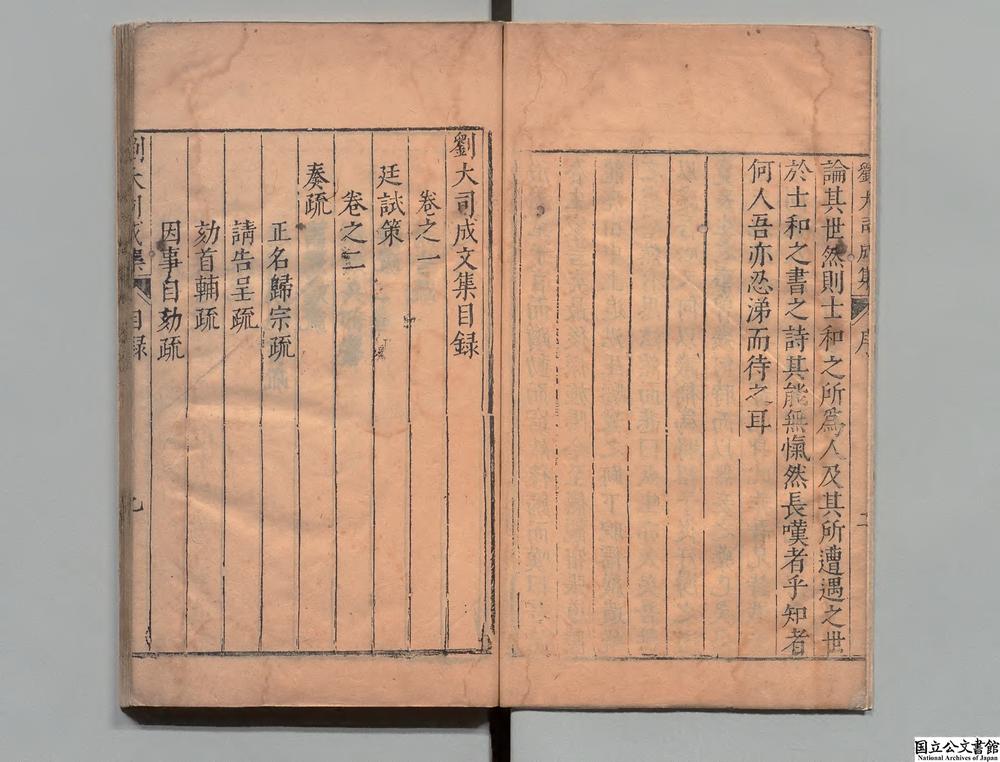 劉大司成集 序 二
論其世然則士和之所為人及其所遭遇之世
於士和之書之詩其能無愾然長嘆者乎知者
何人吾亦忍涕而待之耳
劉大司成文集目録
卷之一
廷試策
卷之二
奏疏
正名歸宗疏
請告呈疏
劾首輔疏
因事自劾疏
劉大司成集 目録
国立公文書館
National Archives of Japan